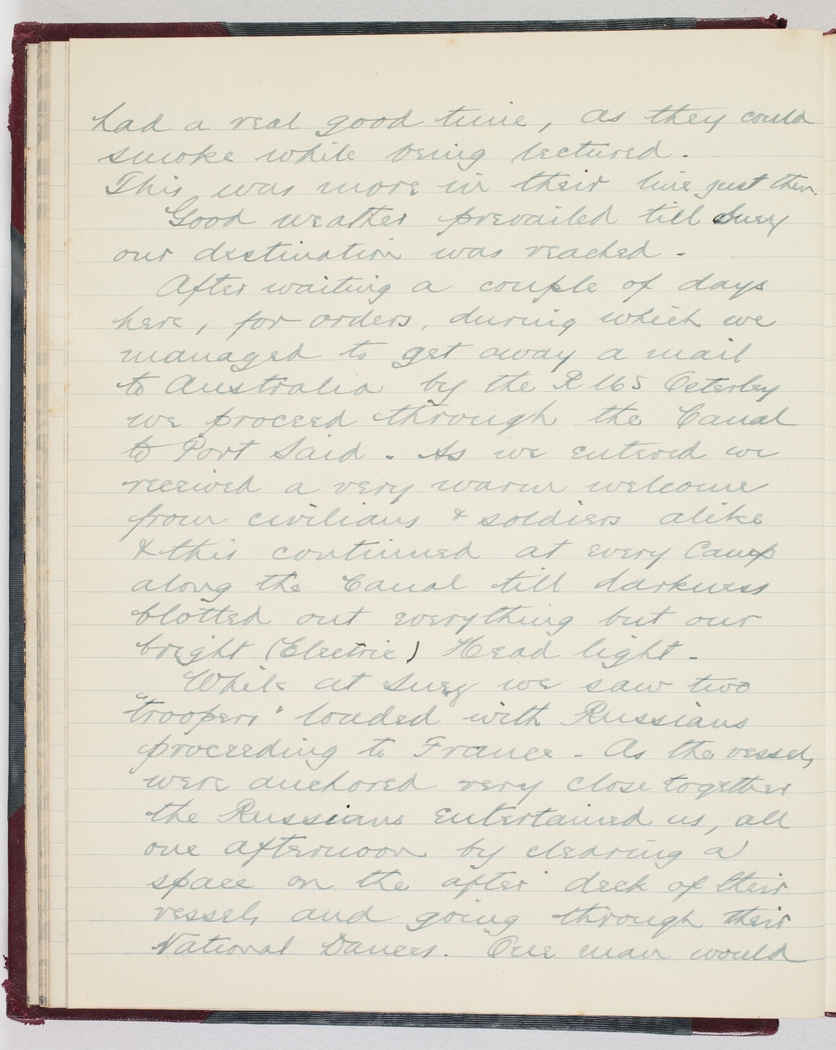 had a real good time, as they could
smoke while being lectured.
This was more in their line just then.
Good weather prevailed till Suez
our destination was reached.
After waiting a couple of days
here, for orders, during which we
managed to get away a mail
to Australia by the R M S Osterley
we proceed through the Canal
to Port Said. As we entered we
received a very warm welcome
from civilians & soldiers alike
& this continued at every Camp
along the Canal till darkness
blotted out everything but our
bright (Electric) Head light.
While at Suez we saw two
"troopers" loaded with Russians
proceeding to France. As the vessels
were anchored very close together
the Russians entertained us, all
one afternoon by clearing a
space on the after deck of their
vessels and going through their
National Dances. One man would